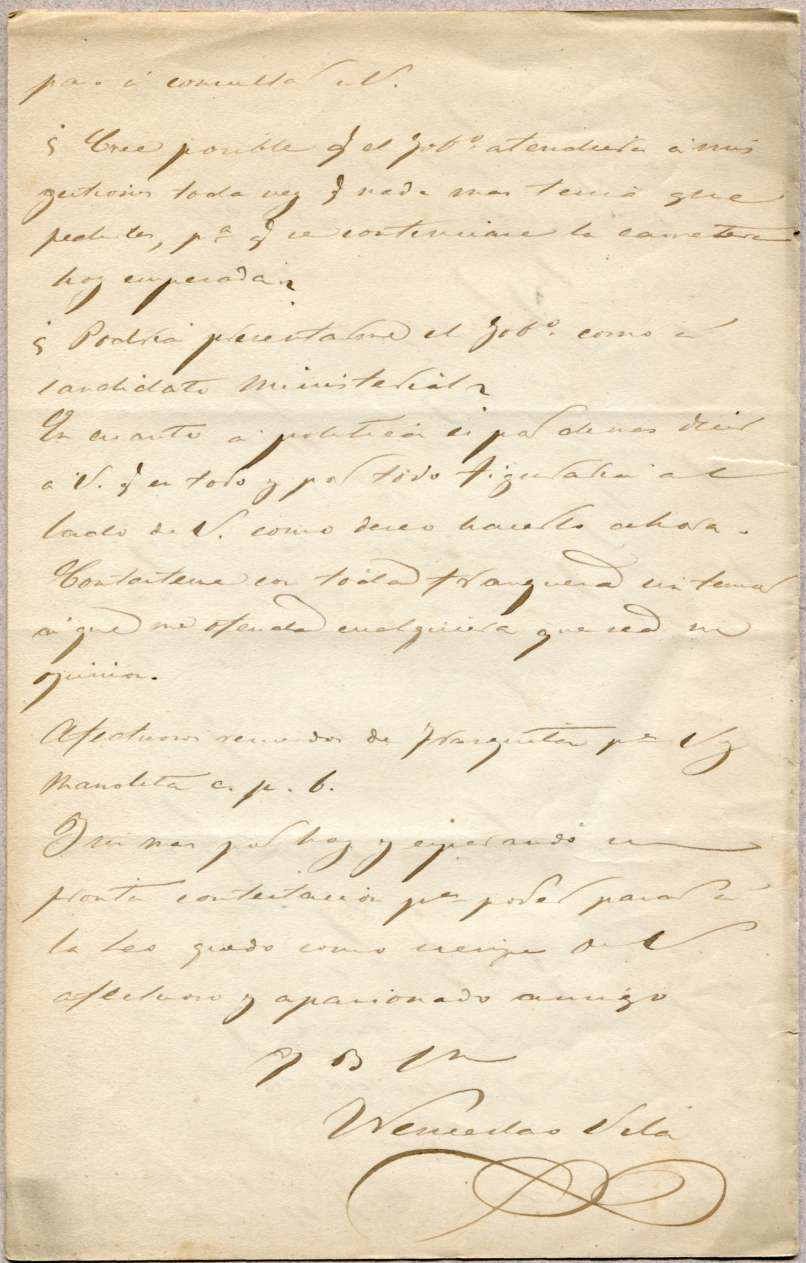 paso á consultar á V.
¿ Cree posible q el Gobº. atendiera á mis
gestiones toda vez q nada mas tenia que
pedirles, pª q se continuase la carretera
hoy empezada?
¿ Podria presentarme el Gobº. como á
candidato ministerial?
En cuanto á politica es por demas decir
á V. q en todo y por todo figuraria al
lado de V. como deseo hacerlo ahora.
Contesteme con toda franqueza sin temor
á que me ofenda cualquiera que sea su
opinion.
Afectuosos recuerdos de Frasquita pª V y
Manolita c. p. b.
Y sin mas por hoy y esperando su
pronta contestacion pª poder pasar á
la Seo quedo como siempre de V.
afectuoso y apasionado amigo
Q B S M
Wenceslao Vilá